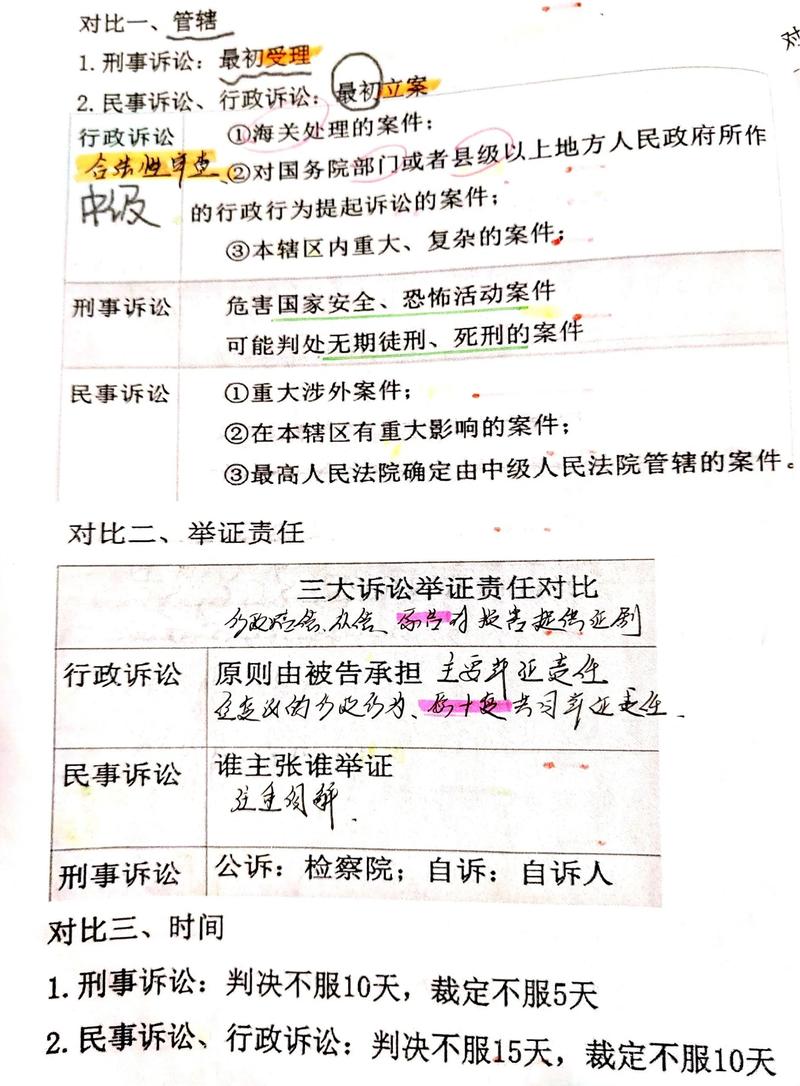 对比一、管辖
对
1.刑事诉讼：最初受理
2.民事诉讼、行政诉讼：最初立案
行政诉讼 ①海关处理的案件；
合法性审查 ②对国务院部门或者县级以上地方人民政府所作
中级 的行政行为提起诉讼的案件；
③本辖区内重大、复杂的案件；
刑事诉讼 危害国家安全、恐怖活动案件
可能判处无期徒刑、死刑的案件
民事诉讼 ①重大涉外案件；
②在本辖区有重大影响的案件；
③最高人民法院确定由中级人民法院管辖的案件。
对比二、举证责任
三大诉讼举证责任对比
原告对损害提供证
行政诉讼 原则由被告承担 主要举证责任
的行政行为、共同举证责任.
民事诉讼 谁主张谁举证
刑事诉讼 公诉：检察院；自诉：自诉人
对比三、时间
1.刑事诉讼：判决不服10天，裁定不服5天
2.民事诉讼、行政诉讼：判决不服15天，裁定不服10天